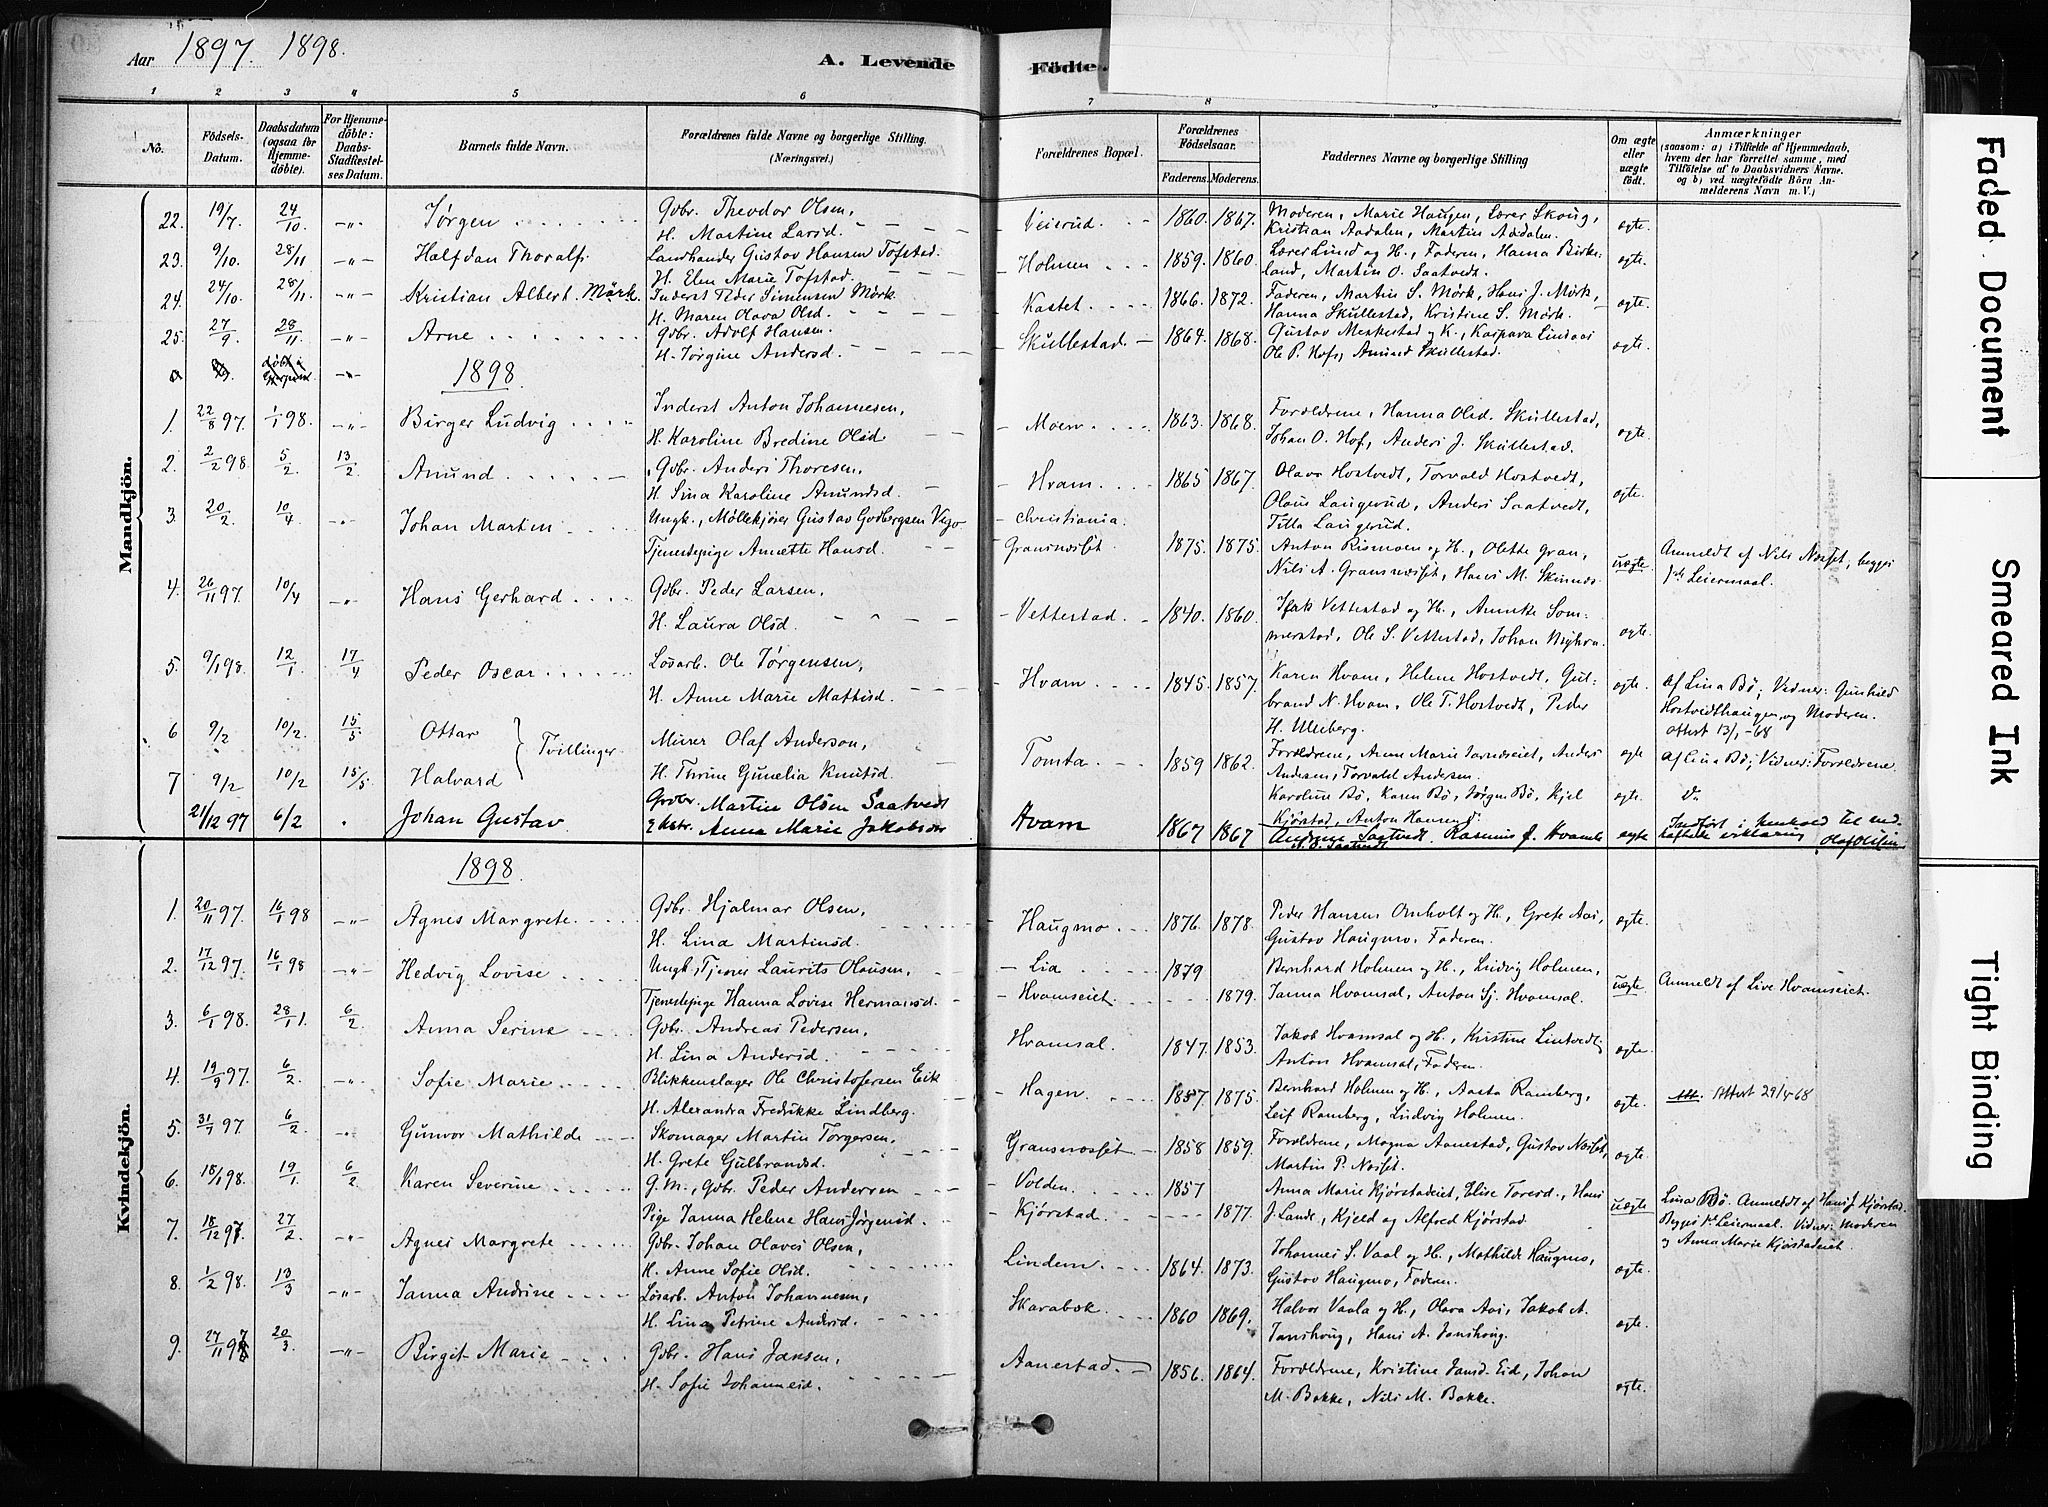 Aar 1897. 1898.
A. Levende Födte.
1 2 3 4 5 6 7 8
No.
Födsels-Datum.
Daabsdatum (ogsaa for Hjemmedöbte).
For Hjemmedöbte: Daabs-Stadfæstelses Datum.
Barnets fulde Navn.
Forældrenes fulde Navne og borgerlige Stilling. (Næringsvei.)
Forældrenes Bopæl.
Forældrenes Födselsaar.
Faderens. Moderens.
Faddernes Navne og borgerlige Stilling
Om ægte eller uægte født.
Anmærkninger
(saasom: a) i Tilfælde af Hjemmedaab, hvem der har forrettet samme, med Tilföielse af to Daabsvidners Navne. og b) ved uægtefödte Börn Anmelderens Navn m. V.)
Mandkjön.
22. 19/7. 24/10 -"- Jørgen Gbr. Theodor Olsen, H. Martine Larsd. Veierud. 1860. 1867. Moderen, Marie Haugen, Lærer Skoug, Kristian Aadalen, Martin Aadalen. ægte.
23. 9/10. 28/11 -"- Halfdan Thoralf. Landhandler Gustav Hansen Tofstad. H. Elen Marie Tofstad. Holmen 1859. 1860. Lærer Lund og H., Faderen, Hanna Birkeland, Martin O. Saatvedt. ægte.
24. 24/10. 28/11. -"- Kristian Albert Mørk. Inderst Peder Simensen Mørk. H. Maren Olava Olsd. Kastet 1866. 1872. Faderen, Martin S. Mørk, Hans J. Mørk, Hanna Skullestad, Kristine S. Mørk. ægte.
25. 27/9. 28/11. -"- Arne Gbr. Adolf Hansen. H. Jørgine Andersd. Skullestad 1864. 1868. Gustav Merkestad og K., Kaspara Lindaas Ole P. Hof, Amund Skullestad. ægte.
1898.
1. 22/8 97. 1/1 98. -"- Birger Ludvig Inderst Anton Johannesen, H. Karoline Bredine Olsd Moen 1863. 1868. Forældrene, Hanna Olsd. Skullestad, Johan O. Hof, Anders J. Skullestad. ægte.
2. 2/2 98. 5/2. 13/2 Amund Gbr. Anders Thoresen, H. Sina Karoline Amundsd. Hvam. 1865 1867. Olava Hostvedt, Torvald Hostvedt, Olaus Langerud, Anders Saatvedt, Tilla Langerud. ægte.
3. 20/2. 10/4 -"- Johan Martin Ungk., Møllekjører Gustav Godbergsen Vego Tjenestepige Annette Hansd. Christiania. Gransnæsset. 1875. 1875. Anton Rismoen og H., Olette Gran, Nils A. Gransnæsset, Hans M. Skinnes uægte. Anmeldt af Nils Næsset, begges 1ste Leiermaal.
4. 26/11 97. 10/4 -"- Hans Gerhard Gbr. Peder Larsen, H. Laura Olsd. Vettestad. 1840. 1860. Isak Vettestad og H., Annike Sommerstad, Ole S. Vettestad, Johan Myhra ægte.
5. 9/1 98. 12/1. 17/4 Peder Oscar Løsarb. Ole Jørgensen, H. Anne Marie Mathisd. Hvam 1845. 1857. Karen Hvam, Helene Hostvedt, Gulbrand N. Hvam, Ole T. Hostvedt, Peder H. Uleberg. ægte. Af Lina Bø; Vidner: Gunhild Hostvedthaugen og Moderen. Attest 13/1-68
6 9/2 10/2. 15/5 Ottar } Tvillinger. Murer Olaf Anderson, Tomta 1859 1862. Forældrene, Anne Marie Andersen, Torvald Andersen. ægte Af Lina Bø; Vidner: Forældrene.
7 9/2 10/2 15/5. Halvard H. Thrine Gunelia Knutsd. Karoline Bø, Karen Bø, Jørgen Bø, Kjel Kjørstad, Anton Hansen ægte. do
21/12 97 6/2 Johan Gustav Grdbr. Martin Olsen Saatvedt Anna Marie Jakobsdr Hvam 1867 1867 Saatvedt. Rasmus J. Hvamb ægte Indført i henhold til vedhæftede erklæring Olaf Olsen
Kvindekjön.
1898.
1. 20/11 97. 16/1 98 -"- Agnes Margrete Gbr. Hjalmar Olsen, H. Lina Martinsd. Haugmo 1876. 1878. Peder Hansen Omholt og H., Grete Aas, Gustav Haugmo, Faderen. ægte.
2. 17/12 97. 16/1 98 -"- Hedvig Lovise Ungk., Tjener Laurits Olausen, Tjenestepige Hanna Lovise Hermansd. Lia Hvamseiet. 1879 1879. Bernhard Holmen og H., Ludvig Holmen, Janna Hvamsal, Anton Sj. Hvamsal. uægte. Anmeldt af Live Hvamseiet.
3. 6/1 98. 28/1. 6/2 Anna Serine Gbr. Andreas Pedersen, H. Lina Andersd. Hvamsal. 1847. 1853. Jakob Hvamsal og H., Kirstine Lintvedt, Anton Hvamsal, Faderen. ægte.
4. 19/9 97. 6/2 -"- Sofie Marie Blikkenslager Ole Christofersen Eik H. Alexandra Fredrikke Lindberg. Hagen. 1857 1875. Bernhard Holmen og H., Aasta Ramberg, Leif Ramberg, Ludvig Holmen. ægte. Attest 29/4-68
5. 31/7 97. 6/2 Gunvor Mathilde Skomager Martin Torgersen, H. Grete Gulbrandsd. Gransnæsset 1858 1859. Forældrene, Magna Aanestad, Gustav Næsset, Martin P. Næsset. ægte.
6. 18/1 98. 19/1. 6/2 Karen Severine G. M., Gbr. Peder Andersen Pige Janna Helene Hans Jørgensd. Volden. Kjørstad. 1857 1877. Anna Marie Kjørstadeiet, Elise Toresd., Hans J. Lande, Kjeld og Alfred Kjørstad. uægte Lina Bø. Anmeldt af Hans J. Kjørstad. Begges 1ste Leiermaal. Vidner: Moderen og Anna Marie Kjørstadeiet.
7. 18/12 97. 27/2 -"- Agnes Margrete Gbr. Johan Olaves Olsen, H. Anne Sofie Olsd. Lindem 1864. 1873. Johannes S. Vaal og H., Mathilde Haugmo, Gustav Haugmo, Faderen. ægte.
8. 1/2 98. 13/3 -"- Janna Andrine Løsarb. Anton Johannesen, H. Lina Petrine Andersd. Skarabok 1860 1869. Halvor Vaala og H., Olava Aas, Jakob A. Janshoug, Hans A. Janshoug. ægte.
9. 27/11 97 20/3. -"- Birgit Marie Gbr. Hans Jansen, H. Sofie Johannesd. Aanestad 1856. 1864. Forældrene, Kristine Jansd. Eid, Johan M. Bakke, Nils M. Bakke. ægte.
Faded Document
Smeared Ink
Tight Binding